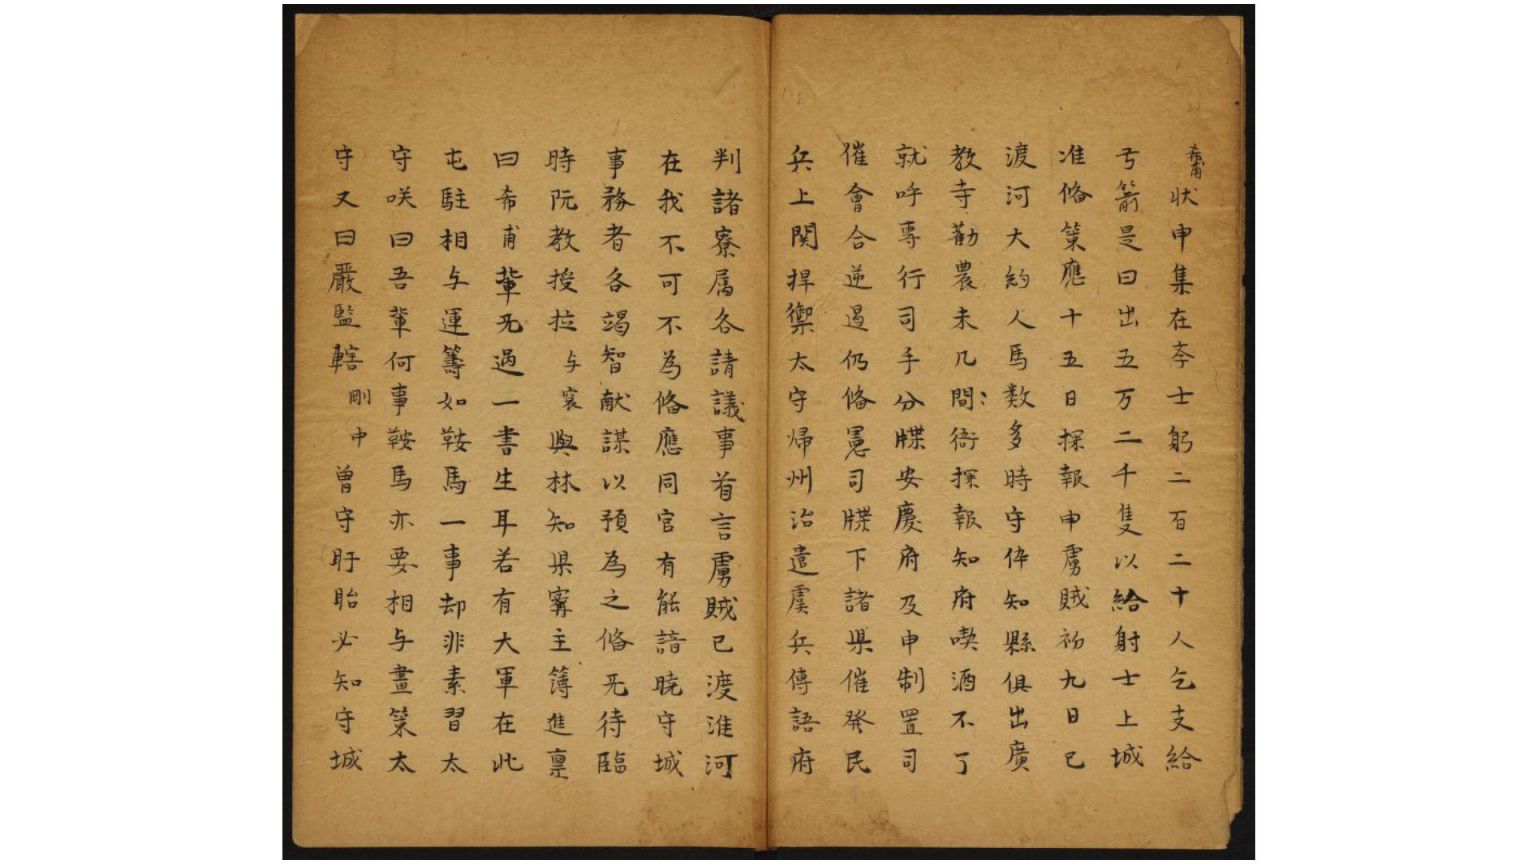 希甫状申集在孝士躬二百二十人乞支給
弓箭是日出五万二千隻以給射士上城
准俻策應十五日探報申虜賊初九日已
渡河大約人馬数多時守倅知縣俱出廣
教寺勸農未几間〻衙探報知府喫酒不了
就呼專行司手分牒安慶府及申制置司
催會合逆遏仍俻憲司牒下諸県催発民
兵上関捍禦太守帰州治遣虞兵傳語府
判諸寮属各請議事首言虜賊已渡淮河
在我不可不為俻應同官有能諳曉守城
事務者各竭智献謀以預為之俻旡待臨
時阮教授拉与褱與林知県寗主簿進禀
曰希甫輩旡過一書生耳若有大軍在此
屯駐相与運籌如鞍馬一事却非素習太
守咲曰吾輩何事鞍馬亦要相与畫策太
守又曰嚴監轄剛中曽守盱眙必知守城